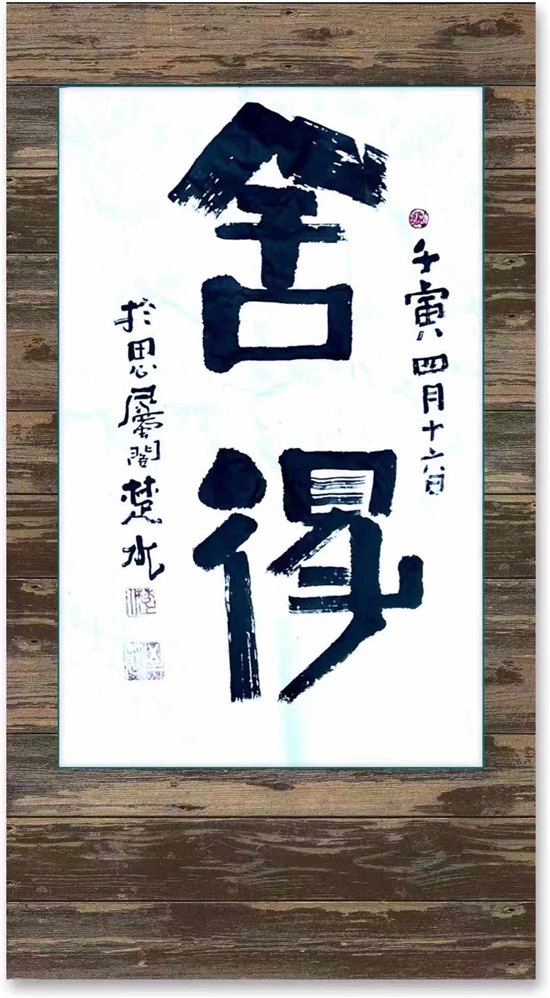 舍得
壬寅四月十六日
於思居 閣楚水